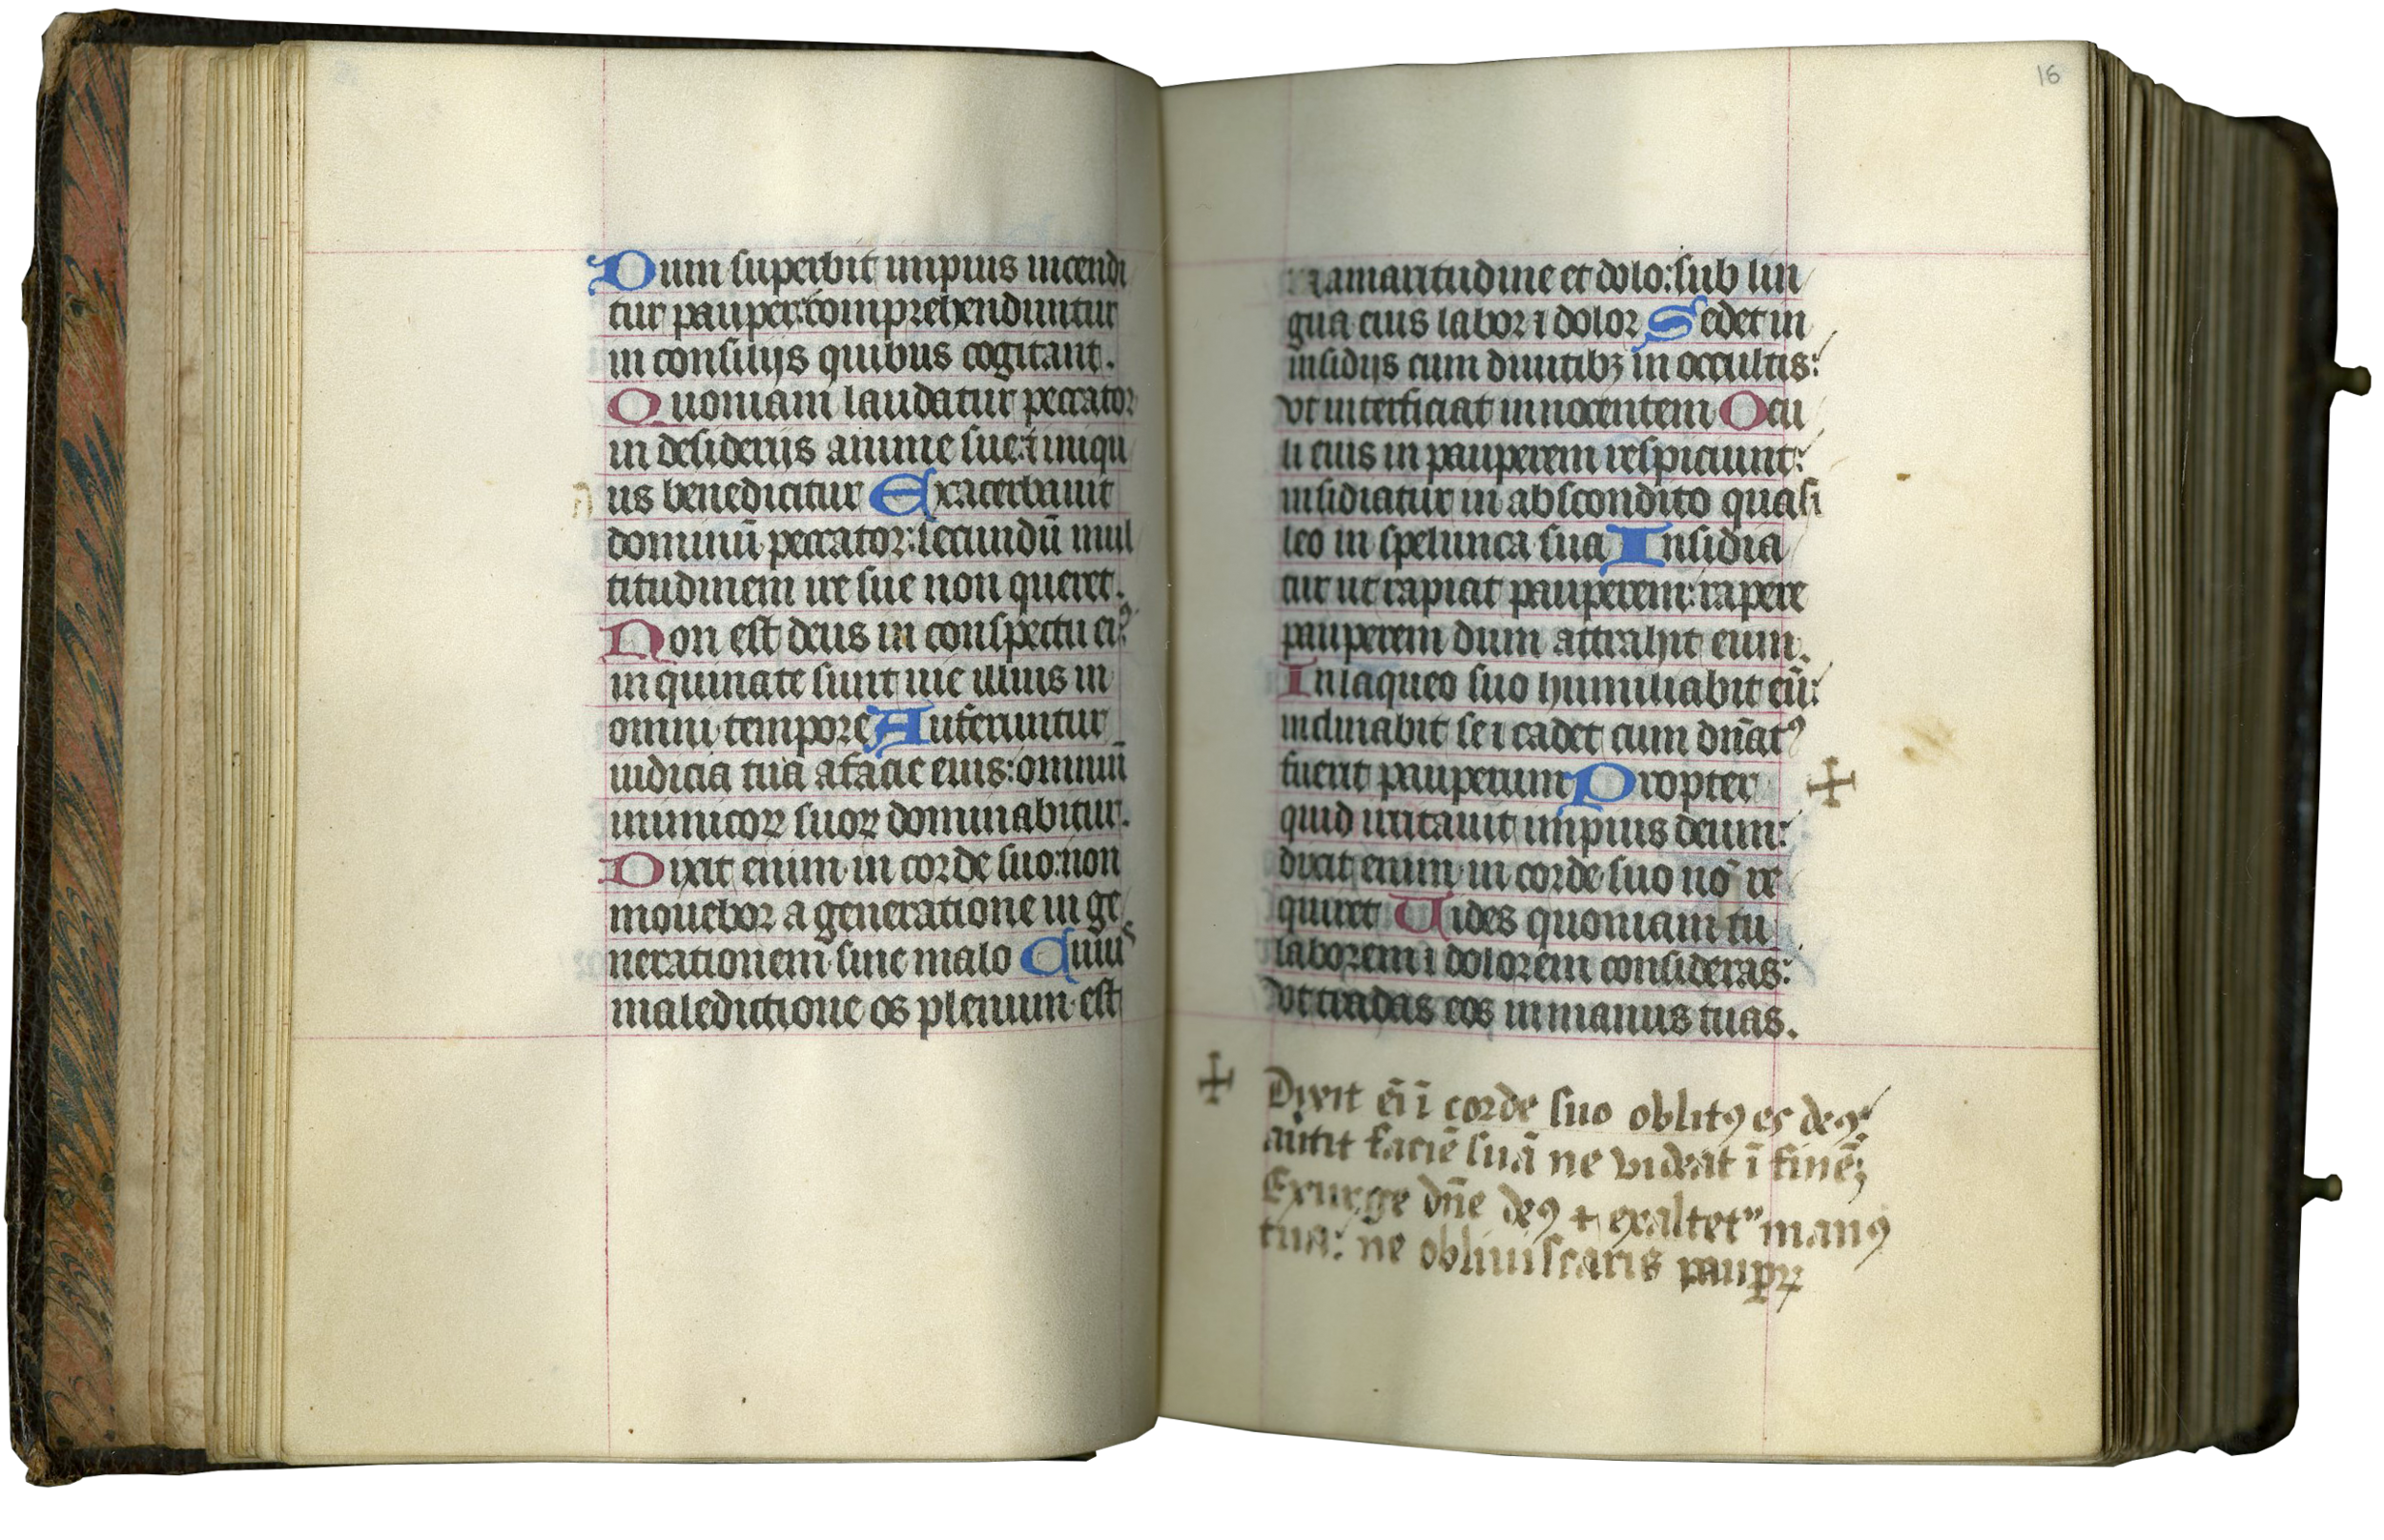 Dum superbit impius incendi
tur pauper: comprehenduntur
in consilijs quibus cogitant.
Quoniam laudatur peccator
in desiderijs anime sue: ⁊ iniqu
us benedicitur Exacerbauit
dominū peccator: secundū mul
titudinem ire sue non queret.
Non est deus in conspectu eiꝰ
inquinate sunt uie illius in
omni tempore Auferuntur
iudicia tua a facie eius: omniū
inimicoꝝ suoꝝ dominabitur.
Dixit enim in corde suo: non
mouebor a generatione in ge
nerationem sine malo Cuius
maledictione os plenum est
16
amaritudine et dolo: sub lin
gua eius labor ⁊ dolor Sedet in
insidijs cum diuitibꝫ in occultis:
vt interficiat innocentem Ocu
li eius in pauperem respiciunt:
insidiatur in abscondito quasi
leo in spelunca sua Insidia
tur ut rapiat pauperem: rapere
pauperem dum attrahit eum.
In laqueo suo humiliabit eū:
inclinabit se ⁊ cadet cum dn̄atꝰ
fuerit pauperum Propter ✢
quid irritauit impius deum:
dixit enim in corde suo nō re
quiret Uides quoniam tu
laborem ⁊ dolorem consideras:
vt tradas eos in manus tuas.
✢ Dixit eī ī corde suo oblitꝰ es deꝰ
autit faciē suā ne videat ī finē;
Exurge dn̄e deꝰ ⁊ exaltet" manꝰ
tua: ne obliuiscaris paupꝝ